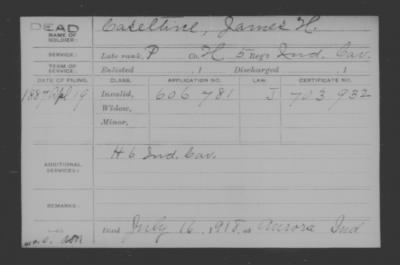 DEAD
NAME OF SOLDIER:
Caseltine, James H.
SERVICE:
Late rank, P Co. H, 5 Reg't Ind. Cav.
TERM OF SERVICE:
Enlisted , 1 Discharged , 1
DATE OF FILING. CLASS. APPLICATION NO. LAW. CERTIFICATE NO.
1887 Apl 19 Invalid, 606 781 J 723 932
Widow,
Minor,
ADDITIONAL SERVICES:
H 6 Ind. Cav.
REMARKS:
Died July 16, 1918, at Aurora Ind